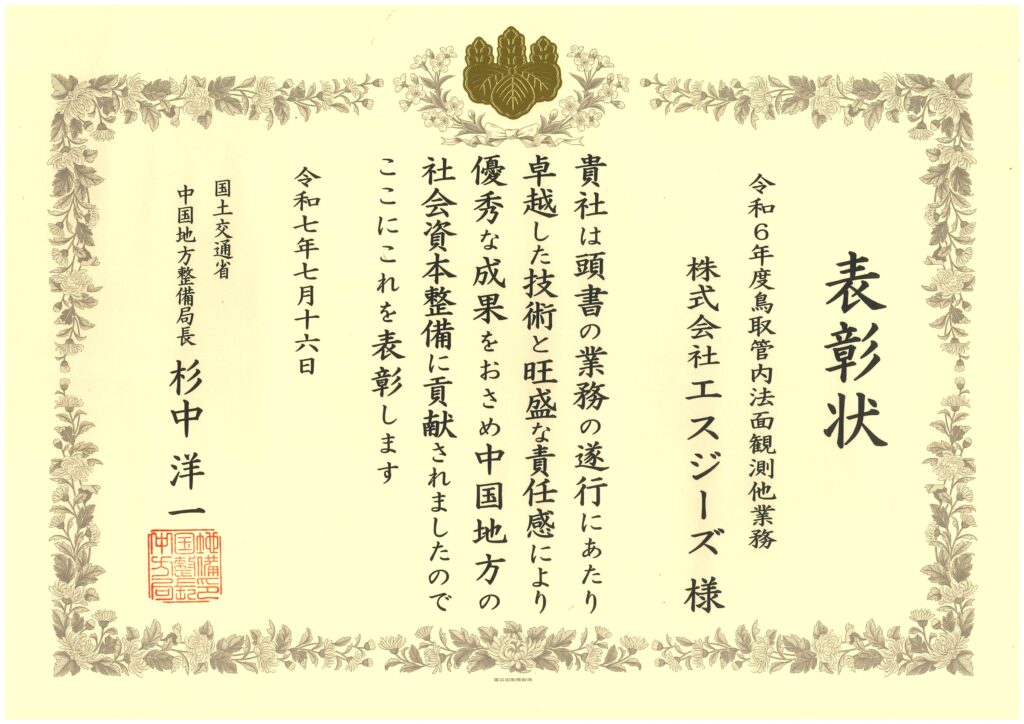 表彰状
令和6年度鳥取管内法面観測他業務
株式会社エスジーズ 様
貴社は頭書の業務の遂行にあたり
卓越した技術と旺盛な責任感により
優秀な成果をおさめ中国地方の
社会資本整備に貢献されましたので
ここにこれを表彰します
令和七年七月十六日
国土交通省
中国地方整備局長 杉中洋一